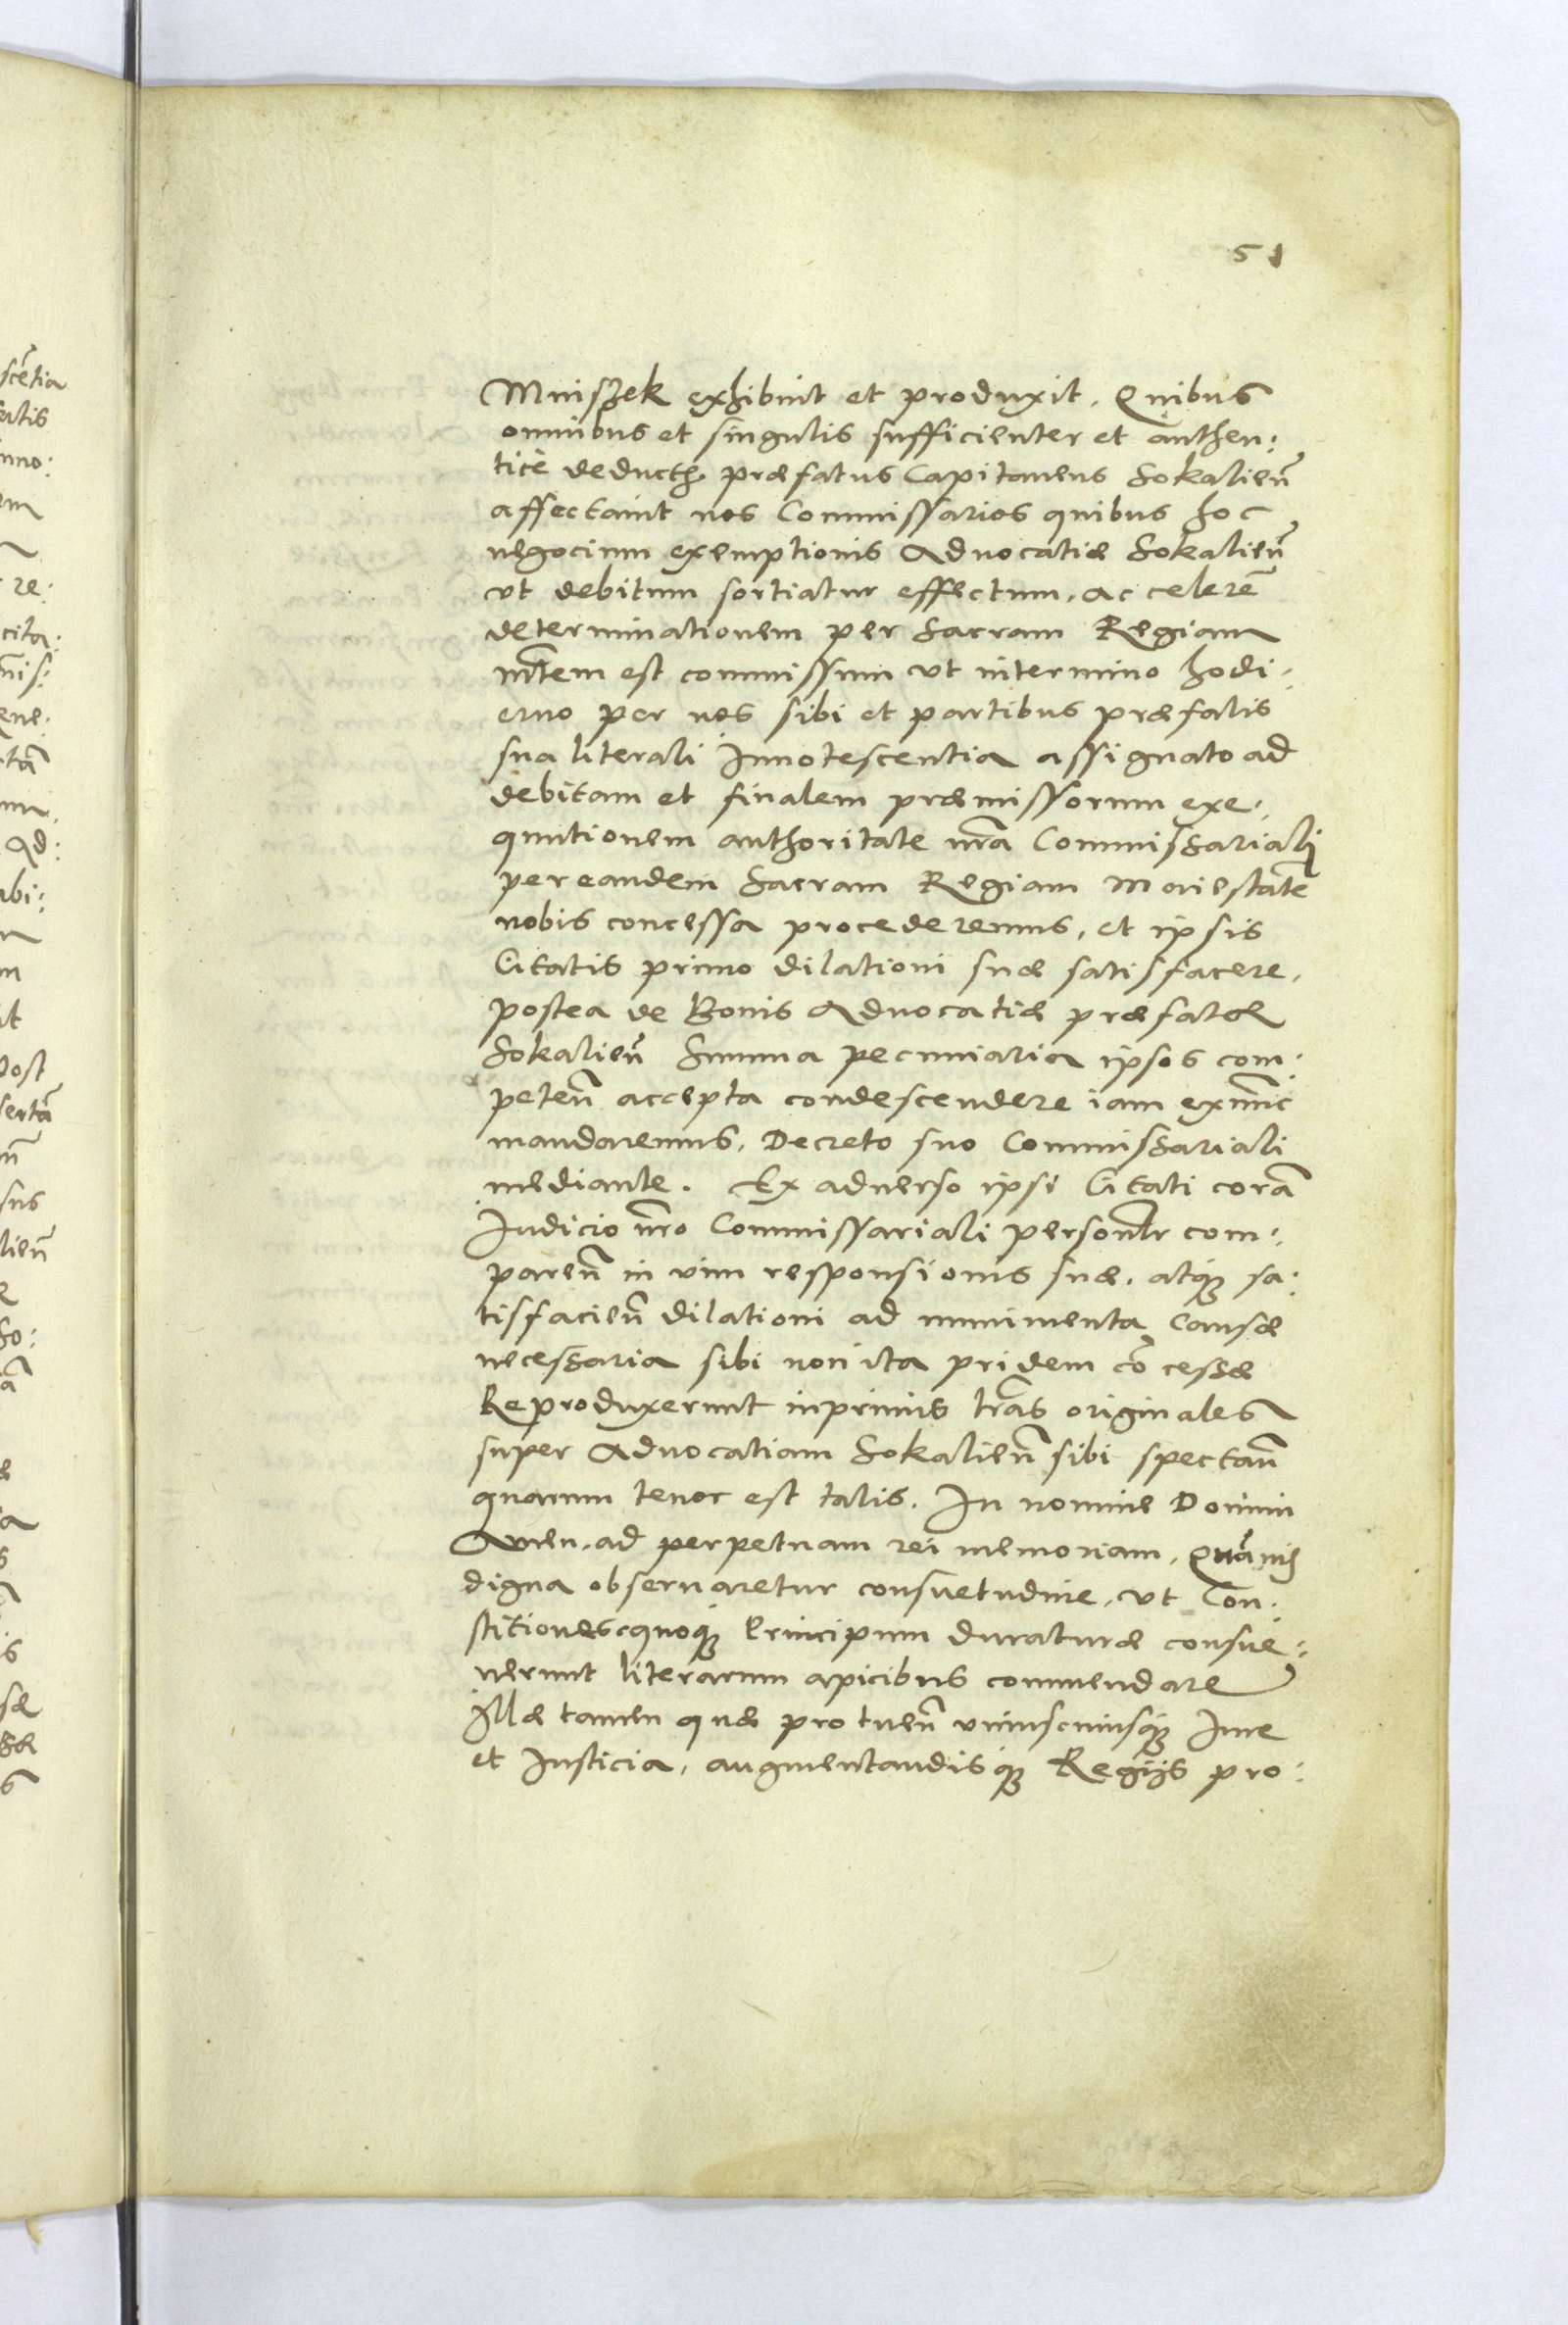 51
Mniszek exhibuit et produxit. Quibus
omnibus et singulis sufficienter et authen:
ticè deductis præfatus Capitaneus Sokalien̄
affectauit nos Commissarios quibus hoc
negocium exemptionis Aduocatiæ Sokalien̄
vt debitum sortiatur effectum, ac celerē
determinationem per Sacram Regiam
Mt̄em est commissum vt in termino hodi:
erno per nos sibi et partibus præfatis
sua literali Innotescentia assignato ad
debitam et finalem præmissorum exe:
quutionem authoritate nr̄a Commissariali
per eandem Sacram Regiam Maiestatē
nobis concessa procederemus, et ipsis
Citatis primo dilationi suæ satisfacere,
postea de Bonis Aduocatiæ præfatæ
Sokalien̄ Summa pecuniaria ipsos com:
peten̄ accepta condescendere iam ex nunc
mandaremus, Decreto suo Commissariali
mediante. Ex aduerso ipsi Citati corā
Iudicio nr̄o Commissariali personlr com:
paren̄ in vim responsionis suæ, atq; sa:
tisfacien̄ dilationi ad munimenta Causæ
necessaria sibi non ita pridem cō cessæ
Reproduxerunt inprimis lr̄as originales
super Aduocatiam Sokalien̄ sibi spectan̄
quarum tenor est talis. In nomine Domini
Amen. ad perpetuam rei memoriam. Quāuis
digna obseruaretur consuetudine, vt Con:
stitiones quoq; Principum duraturæ consue:
uerunt literarum apicibus commendare
Illæ tamen quæ pro tuen̄ vniuscuiusq; Iure
et Iusticia, augmentandisq; Regijs pro: